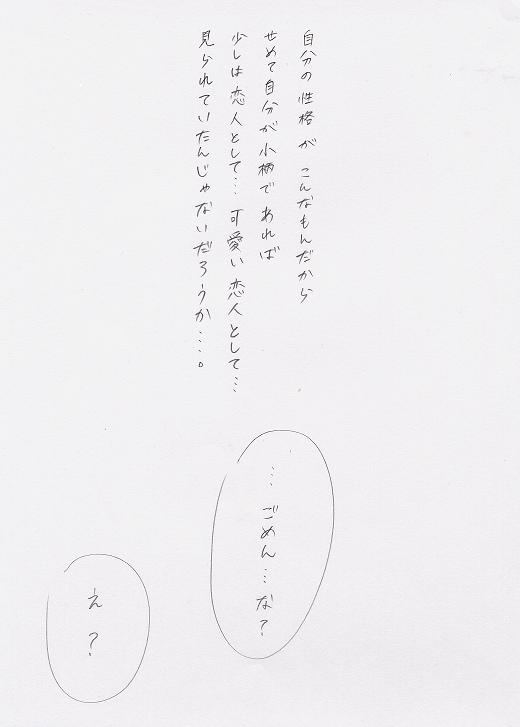 自分の性格がこんなもんだから
せめて自分が小柄であれば
少しは恋人として…可愛い恋人として…
見られていたんじゃないだろうか…。
…ごめん…な?
え?